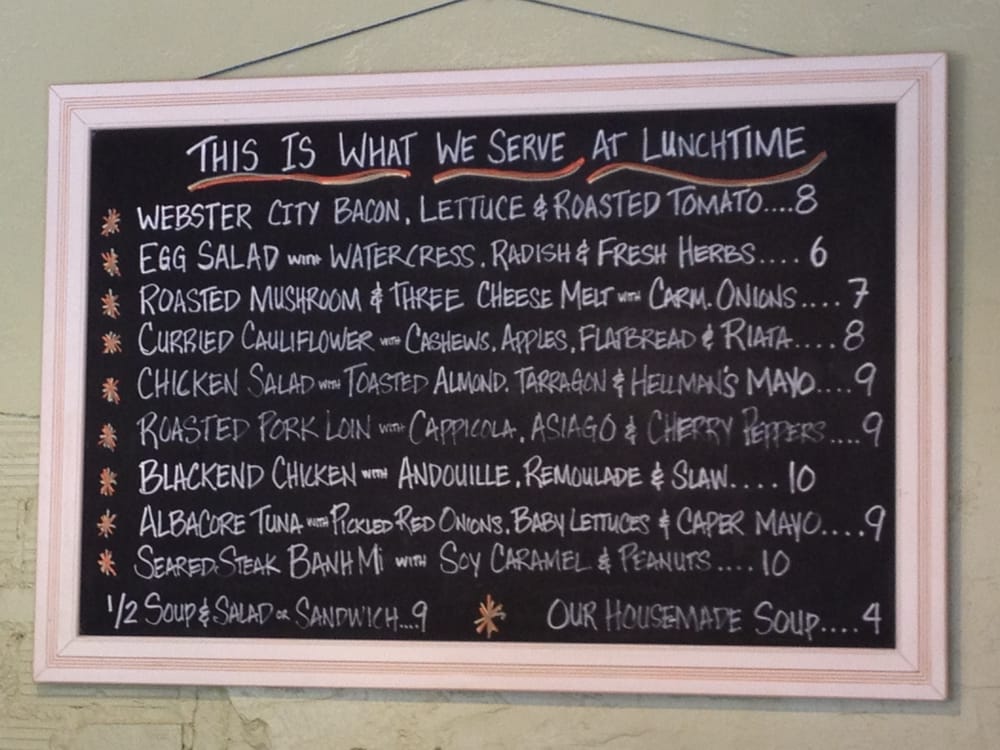 THIS IS WHAT WE SERVE AT LUNCHTIME
* WEBSTER CITY BACON, LETTUCE & ROASTED TOMATO....8
* EGG SALAD WITH WATERCRESS, RADISH & FRESH HERBS.... 6
* ROASTED MUSHROOM & THREE CHEESE MELT WITH CARM. ONIONS.... 7
* CURRIED CAULIFLOWER WITH CASHEWS, APPLES, FLATBREAD & RIATA.... 8
* CHICKEN SALAD WITH TOASTED ALMOND, TARRAGON & HELLMAN'S MAYO....9
* ROASTED PORK LOIN WITH CAPPICOLA, ASIAGO & CHERRY PEPPERS....9
* BLACKEND CHICKEN WITH ANDOUILLE, REMOULADE & SLAW.... 10
* ALBACORE TUNA WITH PICKLED RED ONIONS, BABY LETTUCES & CAPER MAYO....9
* SEARED STEAK BANH Mi WITH SOY CARAMEL & PEANUTS.... 10
1/2 SOUP & SALAD OR SANDWICH...9 * OUR HOUSEMADE SOUP....4